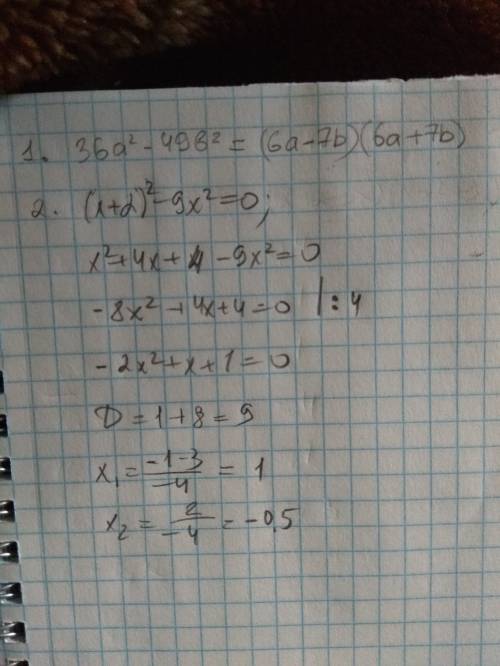 1. 36a² - 49b² = (6a-7b)(6a+7b)
2. (x+2)² - 9x² = 0;
x² + 4x + 4 - 9x² = 0
-8x² + 4x + 4 = 0 | : 4
-2x² + x + 1 = 0
D = 1 + 8 = 9
x₁ = \frac{-1-3}{-4} = 1
x₂ = \frac{2}{-4} = -0,5